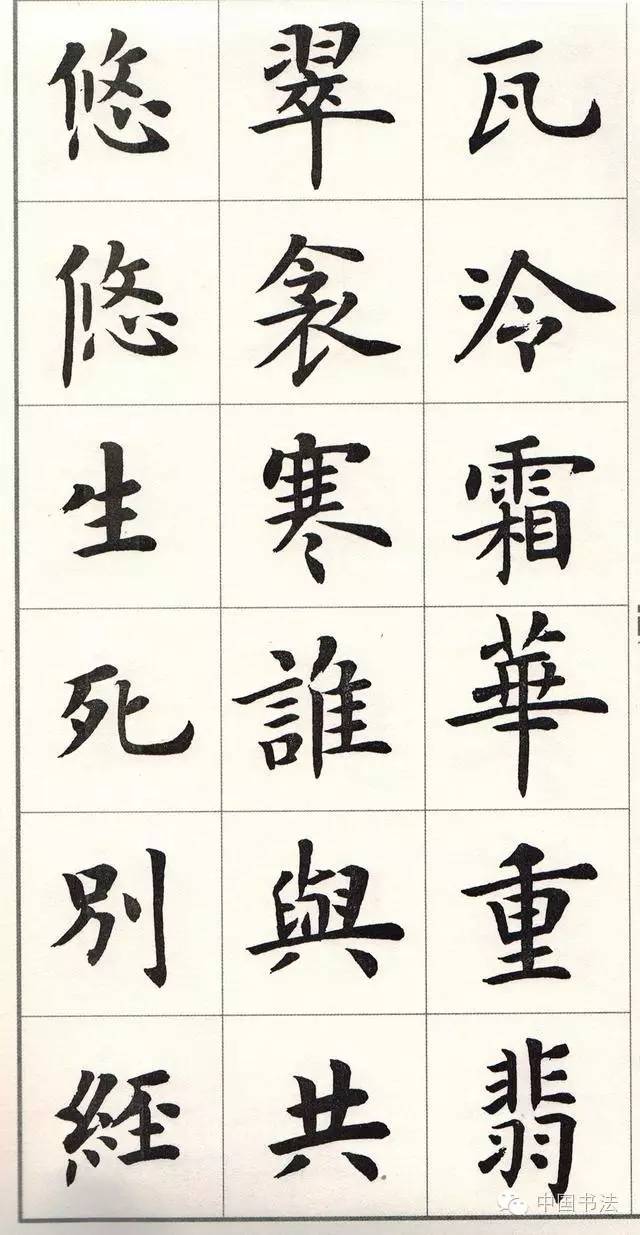 瓦冷霜華重翡
翠衾寒誰與共
悠悠生死別經
中国书法